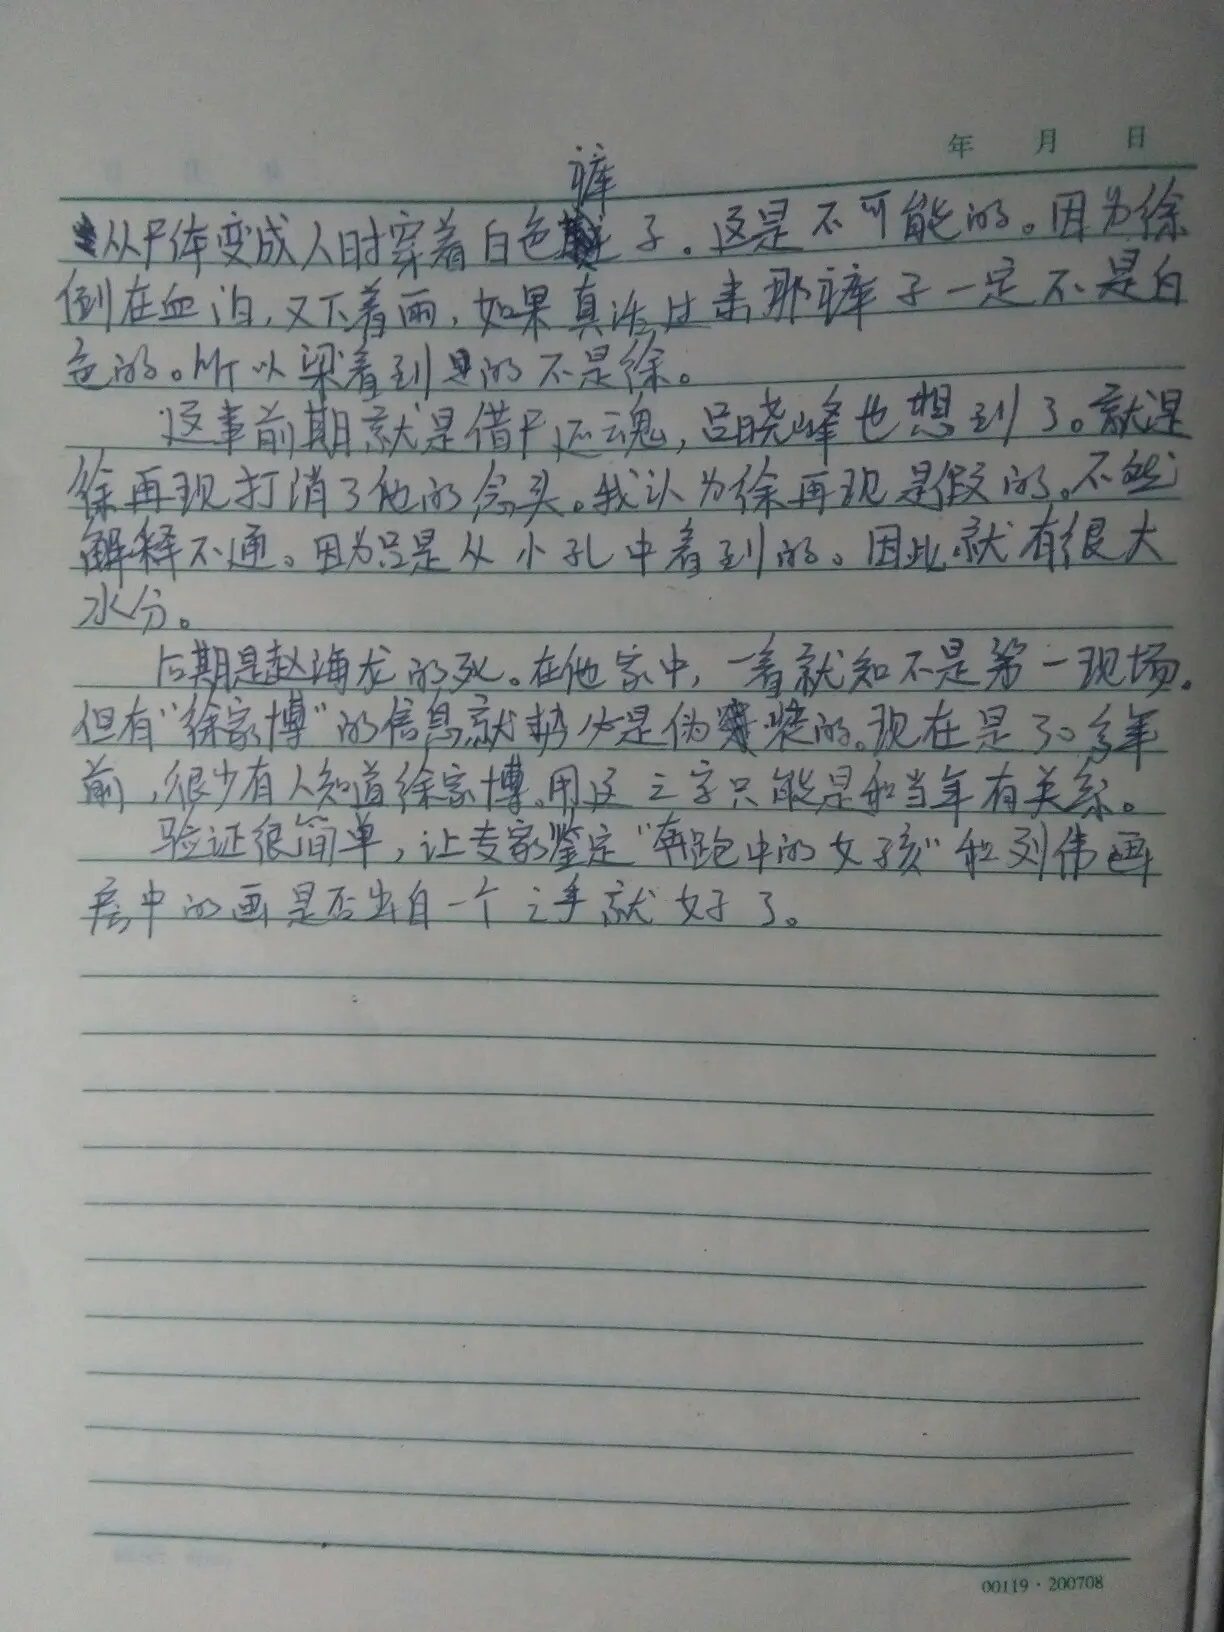 年 月 日
裤
从尸体变成人时穿着白色 子。这是不可能的。因为徐
倒在血泊,又下着雨,如果真活过来那裤子一定不是白
色的。所以梁看到的不是徐。
这事前期就是借尸还魂,吕晓峰也想到了。就是
徐再现打消了他的念头。我认为徐再现是假的。不然
解释不通。因为只是从小孔中看到的。因此就有很大
水分。
后期是赵海龙的死。在他家中,一看就知不是第一现场。
但有“徐家博”的信息就势必是伪装的。现在是30多年
前,很少有人知道徐家博。用这三字只能是和当年有关系。
验证很简单,让专家鉴定“奔跑中的女孩”和刘伟画
展中的画是否出自一个之手就好了。
00119·200708